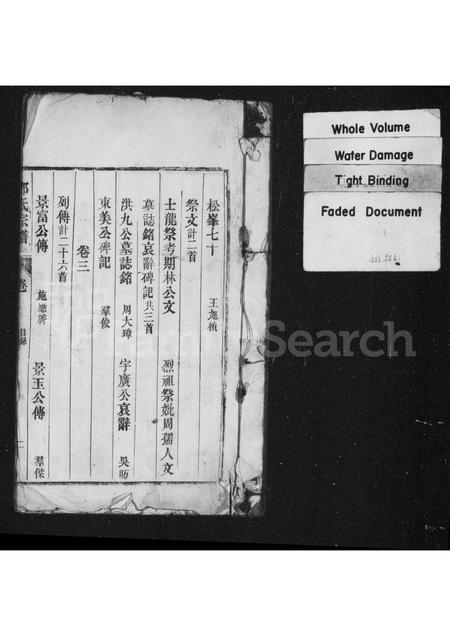 松峯七十 王旭楨
祭文計二首
士龍祭考期林公文 烈祖祭妣周孺人文
墓誌銘哀辭碑記共三首
洪九公墓誌銘 周大璋 宇廣公哀辭 吳昉
東美公碑記 羣俊
卷三
列傳計二十六首
景富公傳 施應濟 景玉公傳 羣傑
氏宗譜 卷 目錄
Whole Volume
Water Damage
Tight Binding
Faded Document
FamilySearch